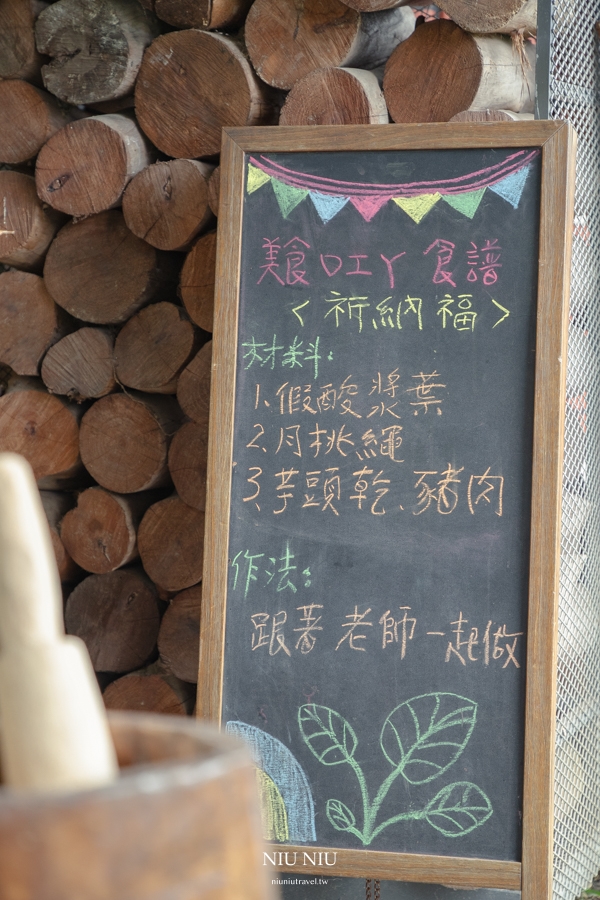 美食DIY 食譜
<祈納福>
材料:
1.假酸漿葉
2.月桃繩
3.芋頭乾、豬肉
作法:
跟著老師一起做
NIU NIU
niuniutravel.tw